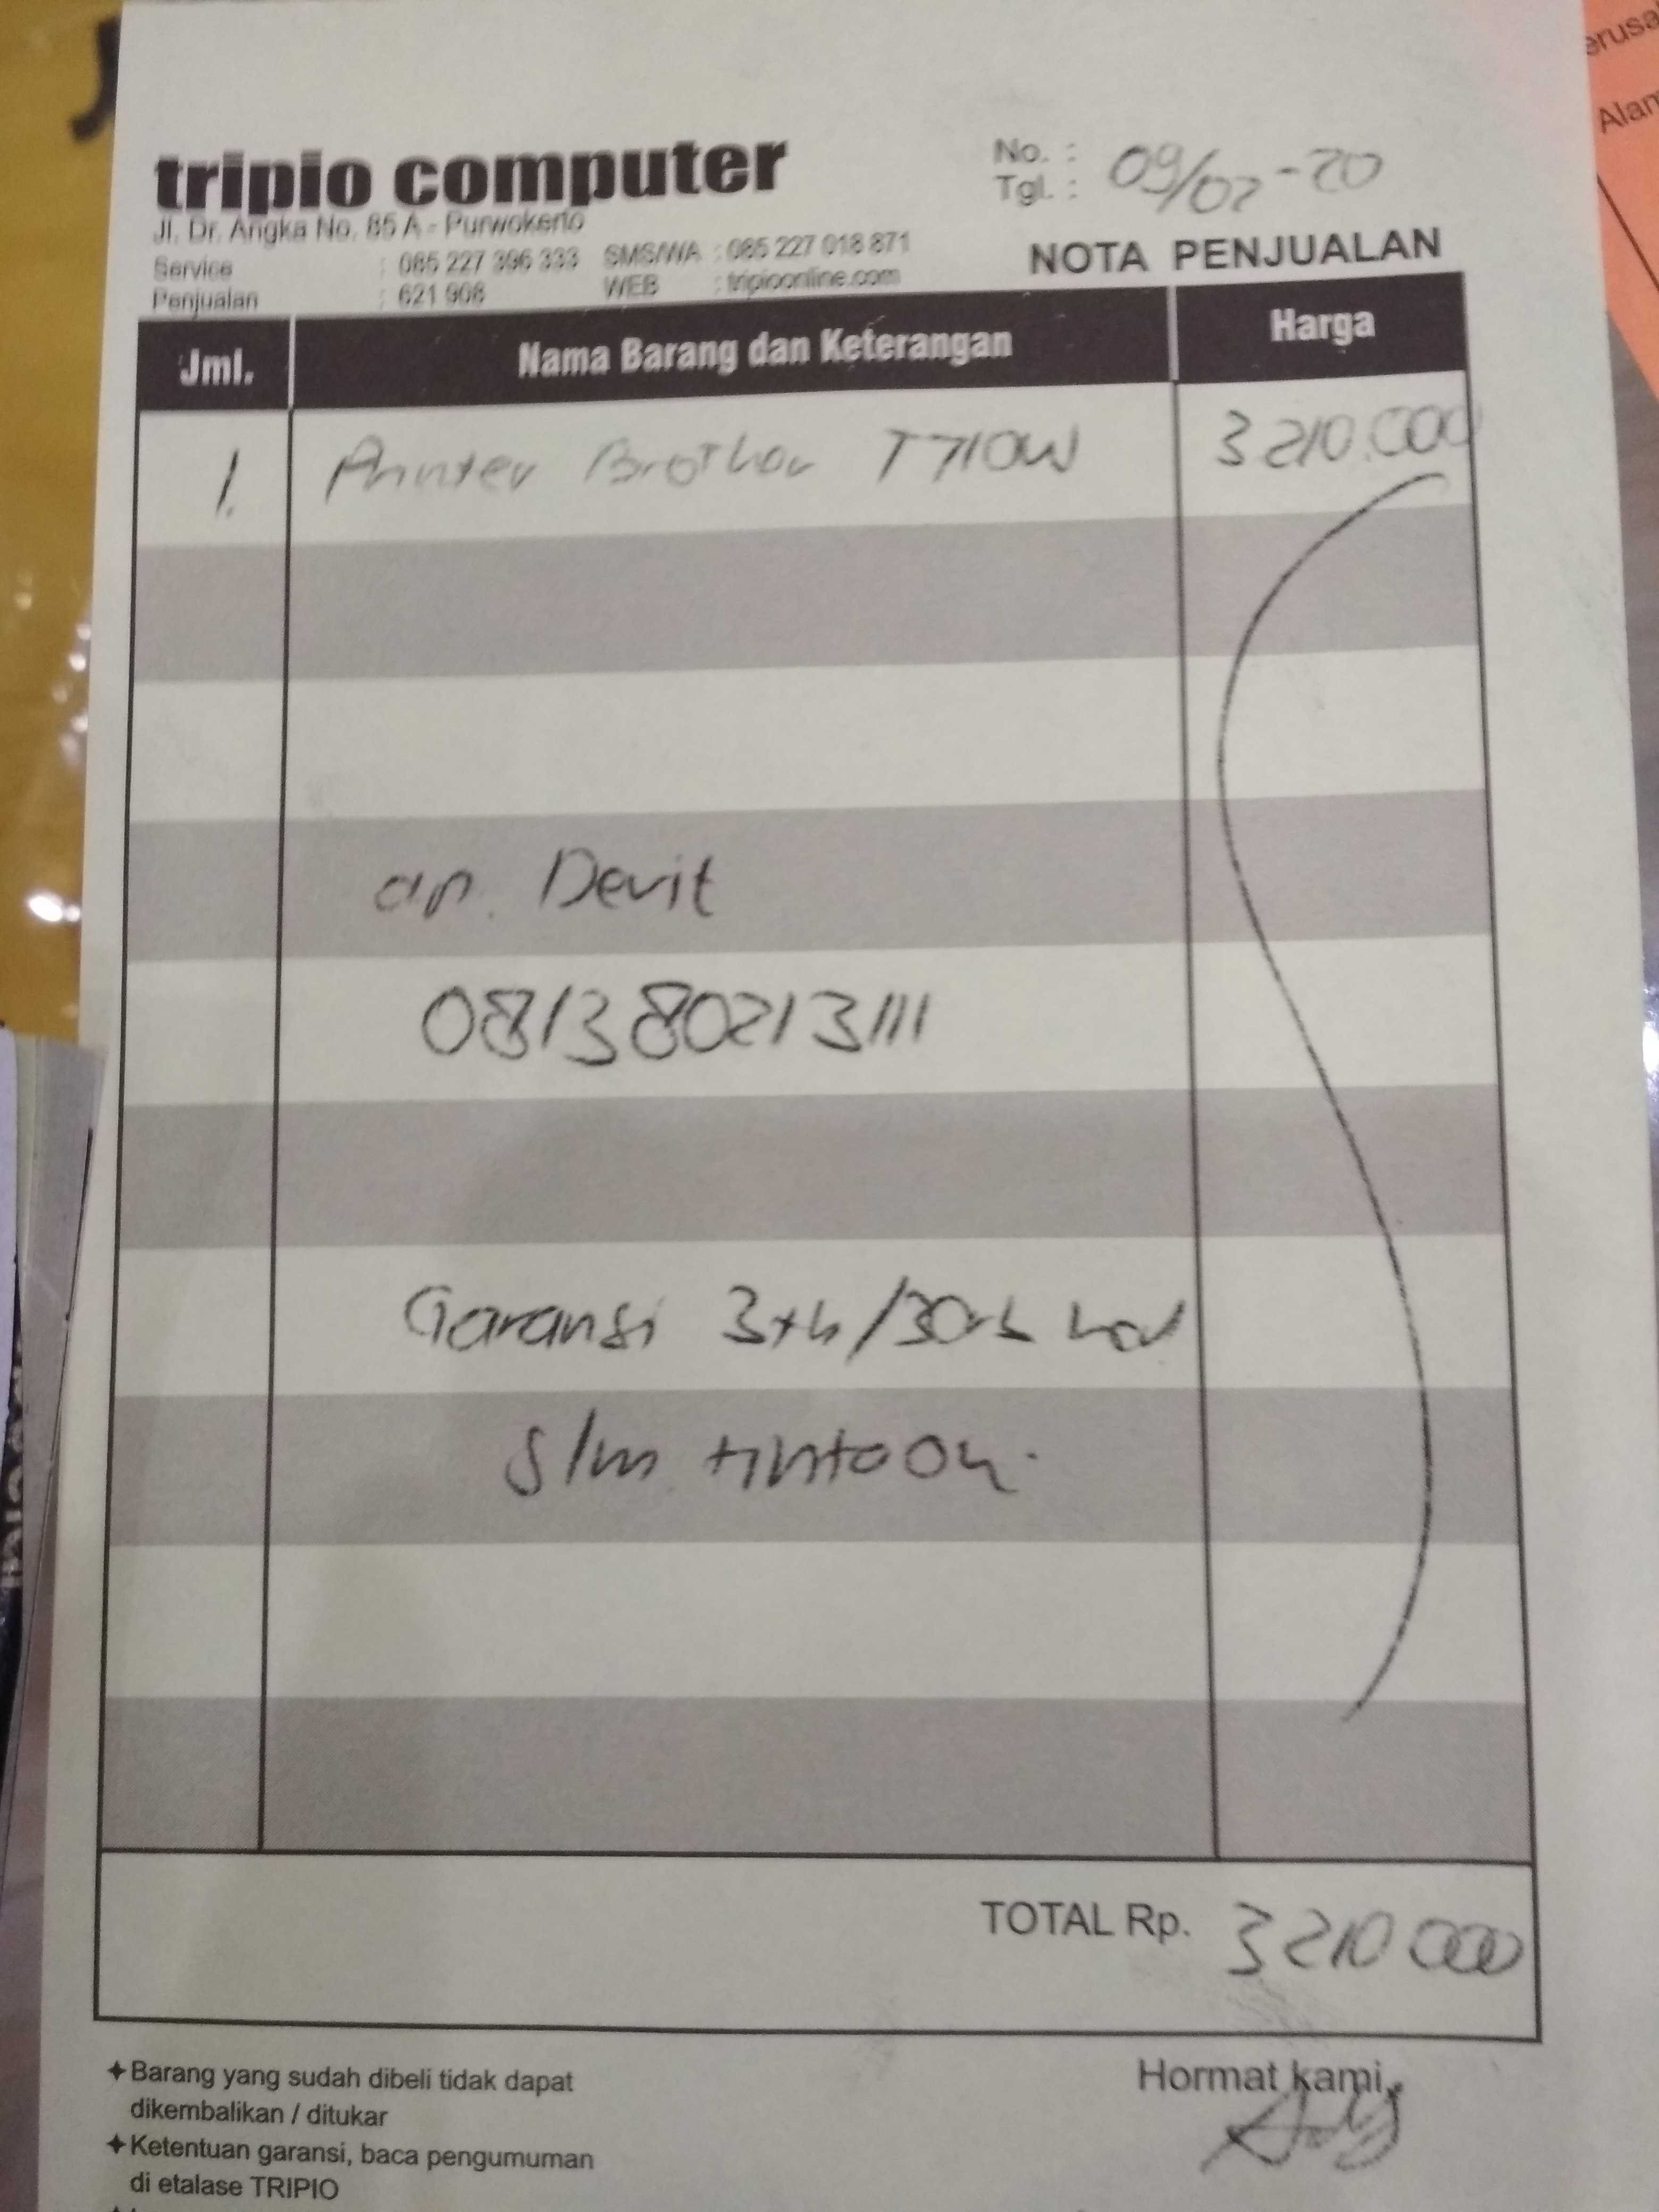 tripio computer
Jl. Dr. Angka No. 85 A - Purwokerto
Service : 085 227 396 333 SMS/WA : 085 227 018 871
Penjualan : 621 908 WEB : tripioonline.com
No. :
Tgl. : 09/02-20
NOTA PENJUALAN
Jml. Nama Barang dan Keterangan Harga
1. Printer Brother T710W 3.210.000
an. Devit
081380213111
Garansi 3th/30rb
slm tinta ori.
TOTAL Rp. 3210000
✦ Barang yang sudah dibeli tidak dapat
dikembalikan / ditukar
✦ Ketentuan garansi, baca pengumuman
di etalase TRIPIO
Hormat kami,
erusa
Alam